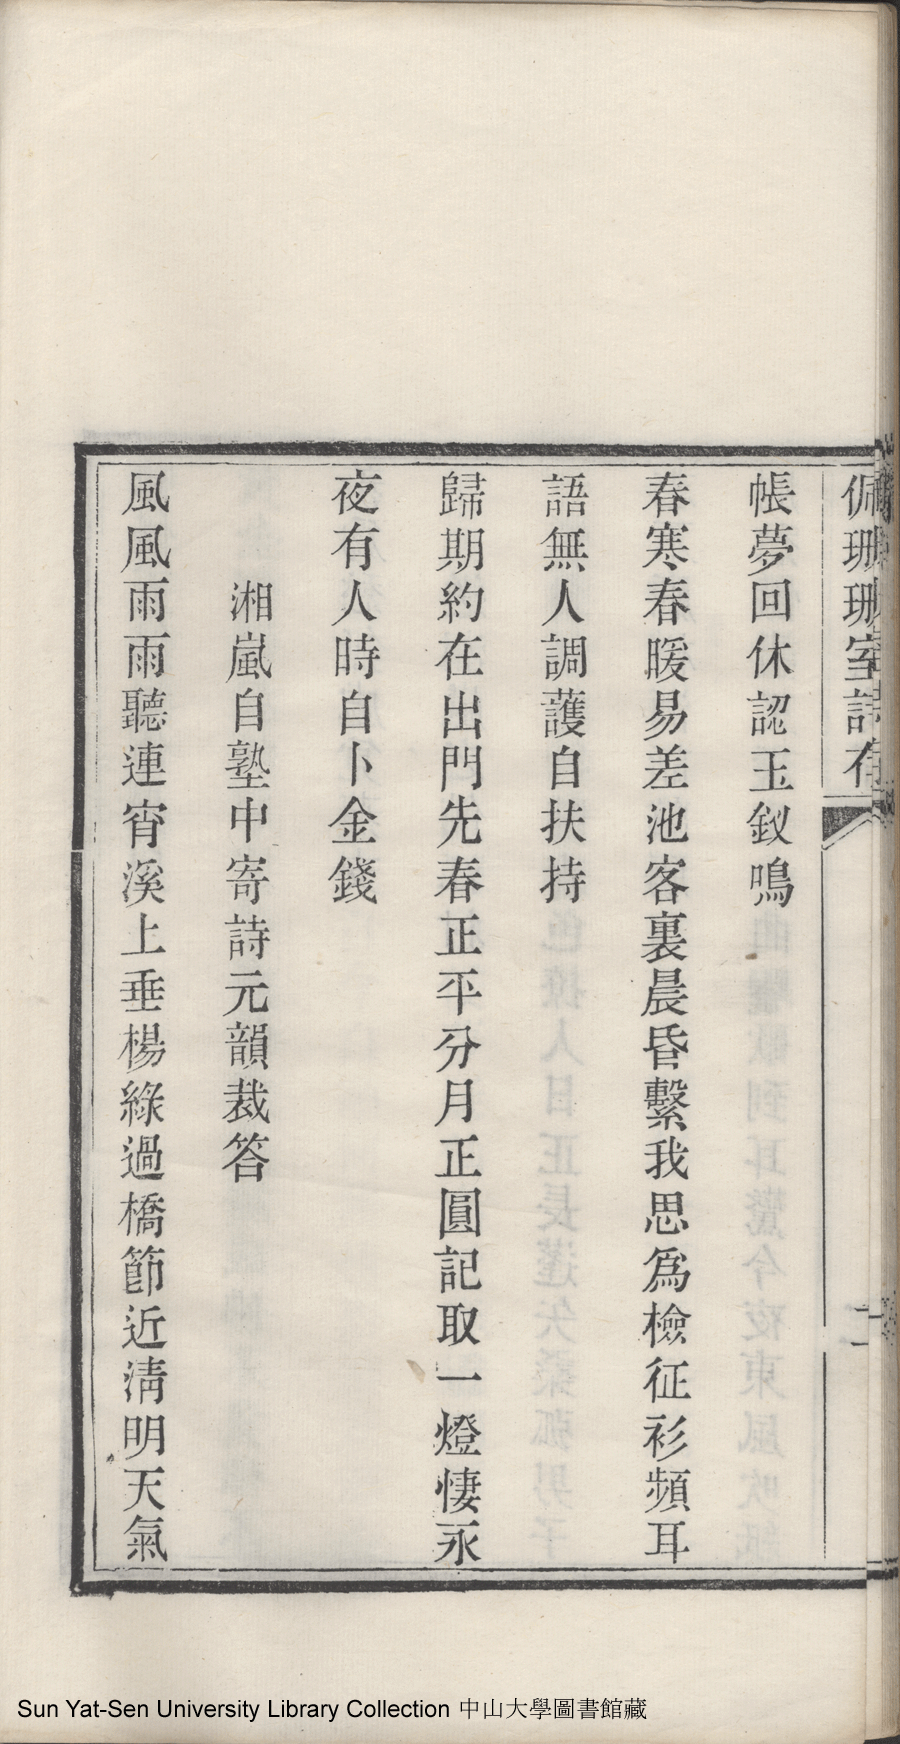 佩珊珊室詩存
二
帳夢回休認玉釵鳴
春寒春暖易差池客裏晨昏繫我思爲檢征衫頻耳
語無人調護自扶持
歸期約在出門先春正平分月正圓記取一燈悽永
夜有人時自卜金錢
湘嵐自塾中寄詩元韻裁答
風風雨雨聽連宵溪上垂楊綠過橋節近淸明天氣
Sun Yat-Sen University Library Collection 中山大學圖書館藏